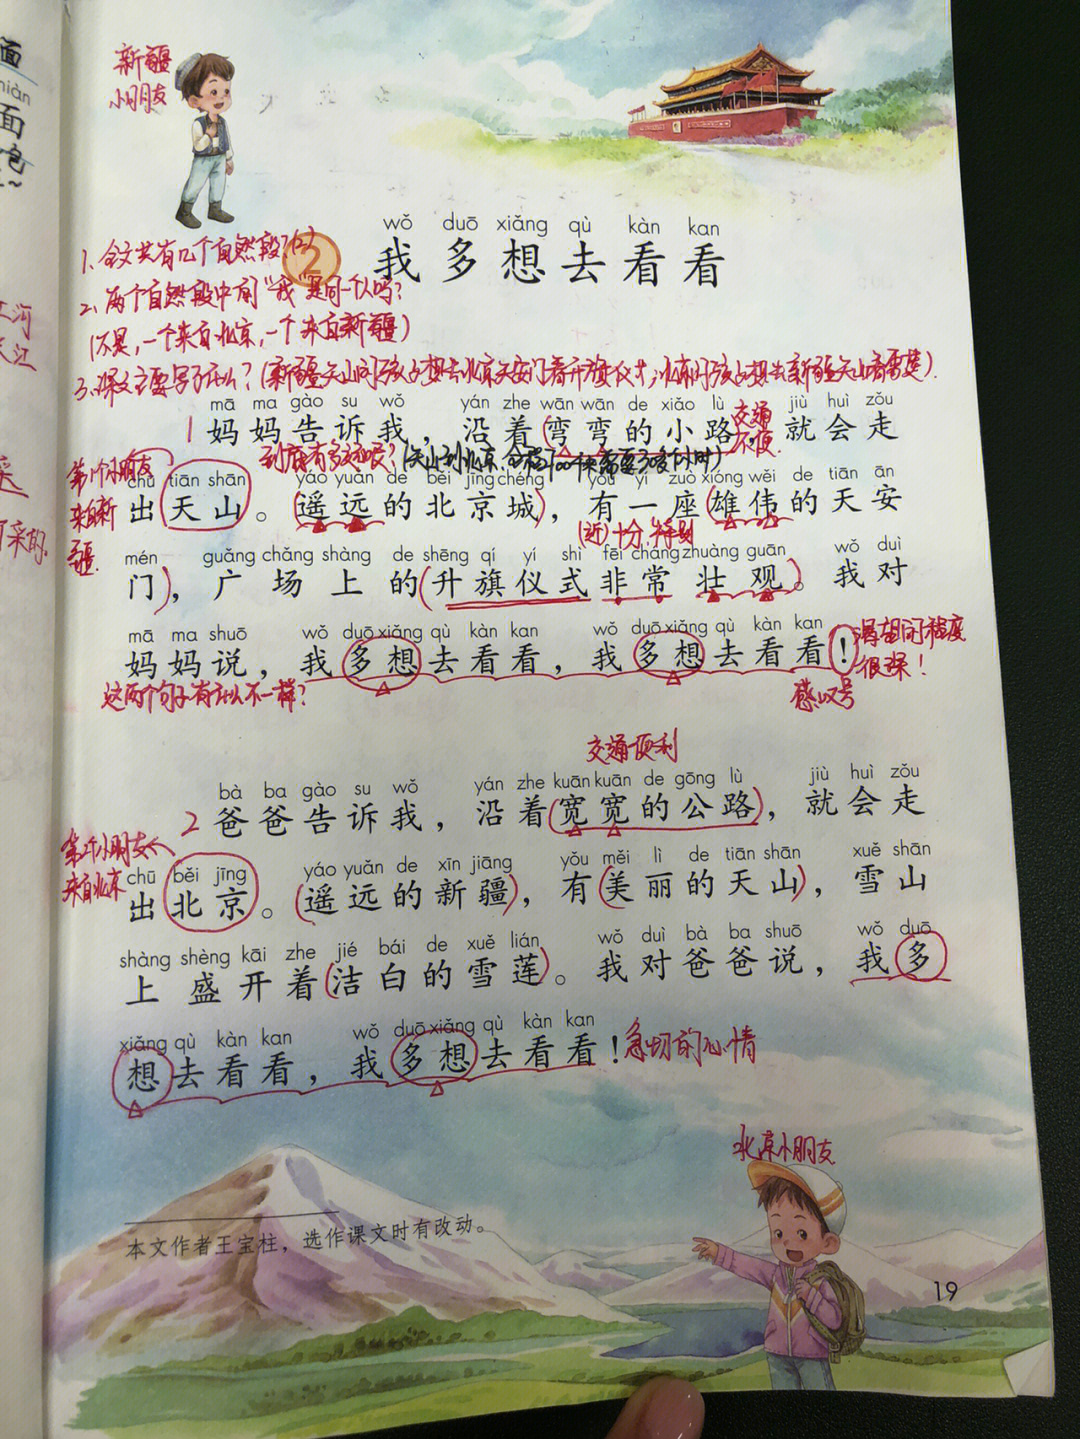 面
miàn
面
色
新疆
小朋友
wǒ duō xiǎng qù kàn kan
2 我多想去看看
1、全文共有几个自然段？(2)
2、两个自然段中间“我”是同一个人吗？
(不是，一个来自北京，一个来自新疆)
3、课文主要写了什么？(新疆天山的孩子想去北京天安门看升旗仪式，北京的孩子想去新疆天山看雪莲).
江河
长江
mā ma gào su wǒ yán zhe wān wān de xiǎo lù jiù huì zǒu
1 妈妈告诉我，沿着(弯弯的小路)，就会走
交通
不便
第1个小朋友
来自新
疆
到底有多远呢？(天山到北京，全程 需要30多个小时)
chū tiān shān yáo yuǎn de běi jīng chéng yǒu yí zuò xióng wěi de tiān ān
出天山。(遥远的北京城)，有一座(雄伟的天安
(近) 十分、特别
mén guǎng chǎng shàng de shēng qí yí shì fēi cháng zhuàng guān wǒ duì
门)，广场上的(升旗仪式非常壮观)。我对
mā ma shuō wǒ duō xiǎng qù kàn kan wǒ duō xiǎng qù kàn kan
妈妈说，我多想去看看，我多想去看看！
渴望的程度
很深！
感叹号
这两个句子有什么不一样？
交通顺利
bà ba gào su wǒ yán zhe kuān kuān de gōng lù jiù huì zǒu
2 爸爸告诉我，沿着(宽宽的公路)，就会走
第2个小朋友
来自北京
chū běi jīng yáo yuǎn de xīn jiāng yǒu měi lì de tiān shān xuě shān
出北京。(遥远的新疆)，有(美丽的天山)，雪山
shàng shèng kāi zhe jié bái de xuě lián wǒ duì bà ba shuō wǒ duō
上盛开着(洁白的雪莲)。我对爸爸说，我多
xiǎng qù kàn kan wǒ duō xiǎng qù kàn kan
想去看看，我多想去看看！急切的心情
北京小朋友
本文作者王宝柱，选作课文时有改动。
19